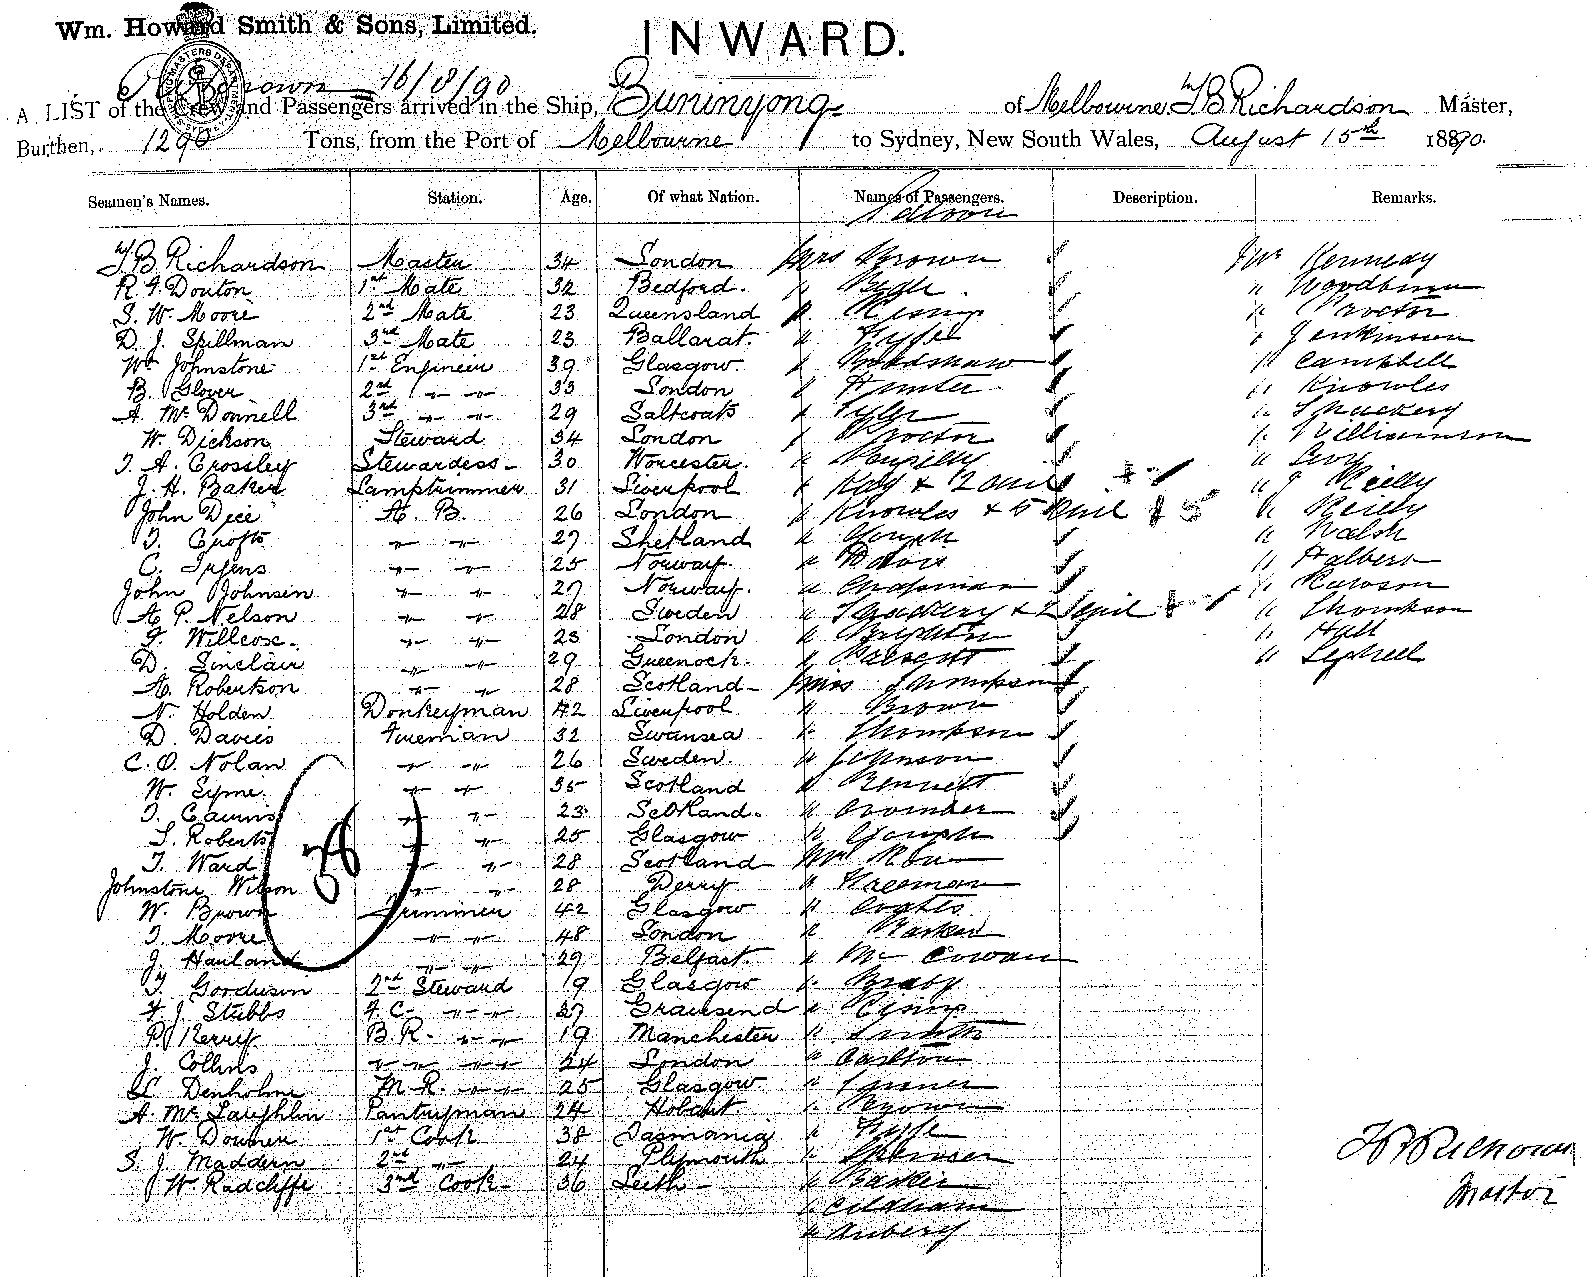 Wm. Howard Smith & Sons, Limited.
INWARD.
16/8/90
A LIST of the Crew and Passengers arrived in the Ship, Buninyong of Melbourne, T B Richardson Master,
Burthen, 1290 Tons, from the Port of Melbourne to Sydney, New South Wales, August 15th 1890.
Seamen's Names. Station. Age. Of what Nation. Names of Passengers. Description. Remarks.
Saloon
T B Richardson Master 34 London Mrs Brown Mr Kennedy
R. J. Douton 1st Mate 32 Bedford. " " Woodburn
S. W. Moore 2nd Mate 23 Queensland " " Proctor
D. J. Spillman 3rd Mate 23 Ballarat. " Fyfe " Jenkinson
Wm Johnstone 1st Engineer 39 Glasgow. " Bradshaw " Campbell
B. Glover 2nd " " 33 London " Hunter " Knowles
A. McDonnell 3rd " " 29 Saltcoats " Tyler " Thackery
W. Dickson Steward 34 London " Proctor " Williamson
T. A. Crossley Stewardess 30 Worcester. " " Levy
J. H. Baker Lamptrimmer 31 Liverpool " Kay & 2 " Reilly
John Dice A. B. 26 London " Knowles & 5 " Reilly
T. Crofts " " 27 Shetland " " Walsh
C. Irgens " " 25 Norway. " Davis " Halbert
John Johnsen " " 27 Norway. " Chapman " Rawson
A. P. Nelson " " 28 Sweden " Thackery & 2 " Thompson
F. Willcox " " 23 London " " Hall
D. Sinclair " " 29 Greenock. " "
A. Robertson " " 28 Scotland Miss Thompson
N. Holden Donkeyman 42 Liverpool " Brown
D. Davies Fireman 32 Swansea " Thompson
C. O. Nolan " " 26 Sweden. " Johnson
W. Syme. " " 35 Scotland " Bennett
T. Cairns " " 23 Scotland. "
S. Roberts " " 25 Glasgow "
T. Ward " " 28 Scotland Mr
Johnstone Wilson " " 28 Derry "
W. Brown Trimmer 42 Glasgow " Coates
T. Moore " " 48 London " Barker
J. Hauland " " 29 Belfast. " McCowan
T. 2nd Steward 19 Glasgow " Brady
F. J. Stubbs F. C. " " 27 Gravesend "
P. Kerry B. R. " " 19 Manchester " Smith
J. Collins " " " " 24 London " Carlton
Denholme M. R. " " 25 Glasgow "
A. McLaughlin Pantryman 24 Hobart " Brown
W. Downer 1st Cook 38 Tasmania " Fyfe
S. J. Maddern 2nd " 24 Plymouth "
W. Radcliffe 3rd Cook 36 Leith " Barker
" Oldham
" Aubery
T B Richardson
Master